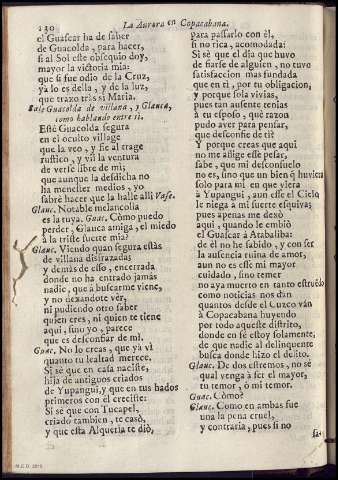 130
La Aurora en Copacabana.
el Guascar ha de saber
de Guacolda, para hacer,
si al Sol este obsequio doy,
mayor la victoria mia:
que si fue odio de la Cruz,
ya lo es della, y de la luz,
que traxo tràs sì Maria.
Sale Guacolda de villana, y Glauca,
como hablando entre sì.
Estè Guacolda segura
en el oculto village
que la veo, y fie al trage
rustico, y vil la ventura
de verse libre de mi;
que aunque la desdicha no
ha menester medios, yo
sabrè hacer que la halle alli Vase.
Glauc. Notable melancolia
es la tuya. Guac. Còmo puedo
perder, Glauca amiga, el miedo
à la triste suerte mia?
Glauc. Viendo quan segura estàs
de villana disfrazada
y demàs de esso, encerrada
donde no ha entrado jamàs
nadie, que à buscarme viene,
y no dexandote vèr,
ni pudiendo otro saber
quien eres, ni quien te tiene
aqui, sino yo, parece
que es desconfiar de mi.
Guac. No lo creas, que yà vì
quanto tu lealtad merece.
Sì sè que en casa naciste,
hija de antiguos criados
de Yupanguì, y que en tus hados
primeros con èl creciste:
Si sè que con Tucapel,
criado tambien, te casò,
y que esta Alqueria te diò,
para passarlo con èl,
si no rica, acomodada:
Si sè que el dia que huvo
de fiarse de alguien, no tuvo
satisfaccion mas fundada
que en tì, por tu obligacion;
y porque sola vivias,
pues tan ausente tenias
à tu esposo, què razon
pudo aver para pensar,
que desconfie de tì?
Y porque creas que aqui
no me aflige esse pesar,
sabe, que mi desconsuelo
no es, sino que un bien q̃ huviera
solo para mì en que viera
à Yupangui, aun esse el Cielo
le niega à mi suerte esquiva;
pues apenas me dexò
aqui, quando le embiò
el Guascar à Atabaliba:
de èl no he sabido, y con ser
la ausencia ruina de amor,
aun no es esse mi mayor
cuidado, sino temer
no aya muerto en tanto estruẽdo
como noticias nos dàn
quantos desde el Cuzco vàn
à Copacabana huyendo
por todo aqueste distrito,
donde en fè estoy solamente,
de que nadie al delinquente
busca donde hizo el delito.
Glauc. De dos estremos, no sè
qual venga à ser el mayor,
tu temor, ò mi temor.
Guac. Còmo?
Glauc. Como en ambas fue
una la pena cruel,
y contraria, pues si no
M.C.D. 2015